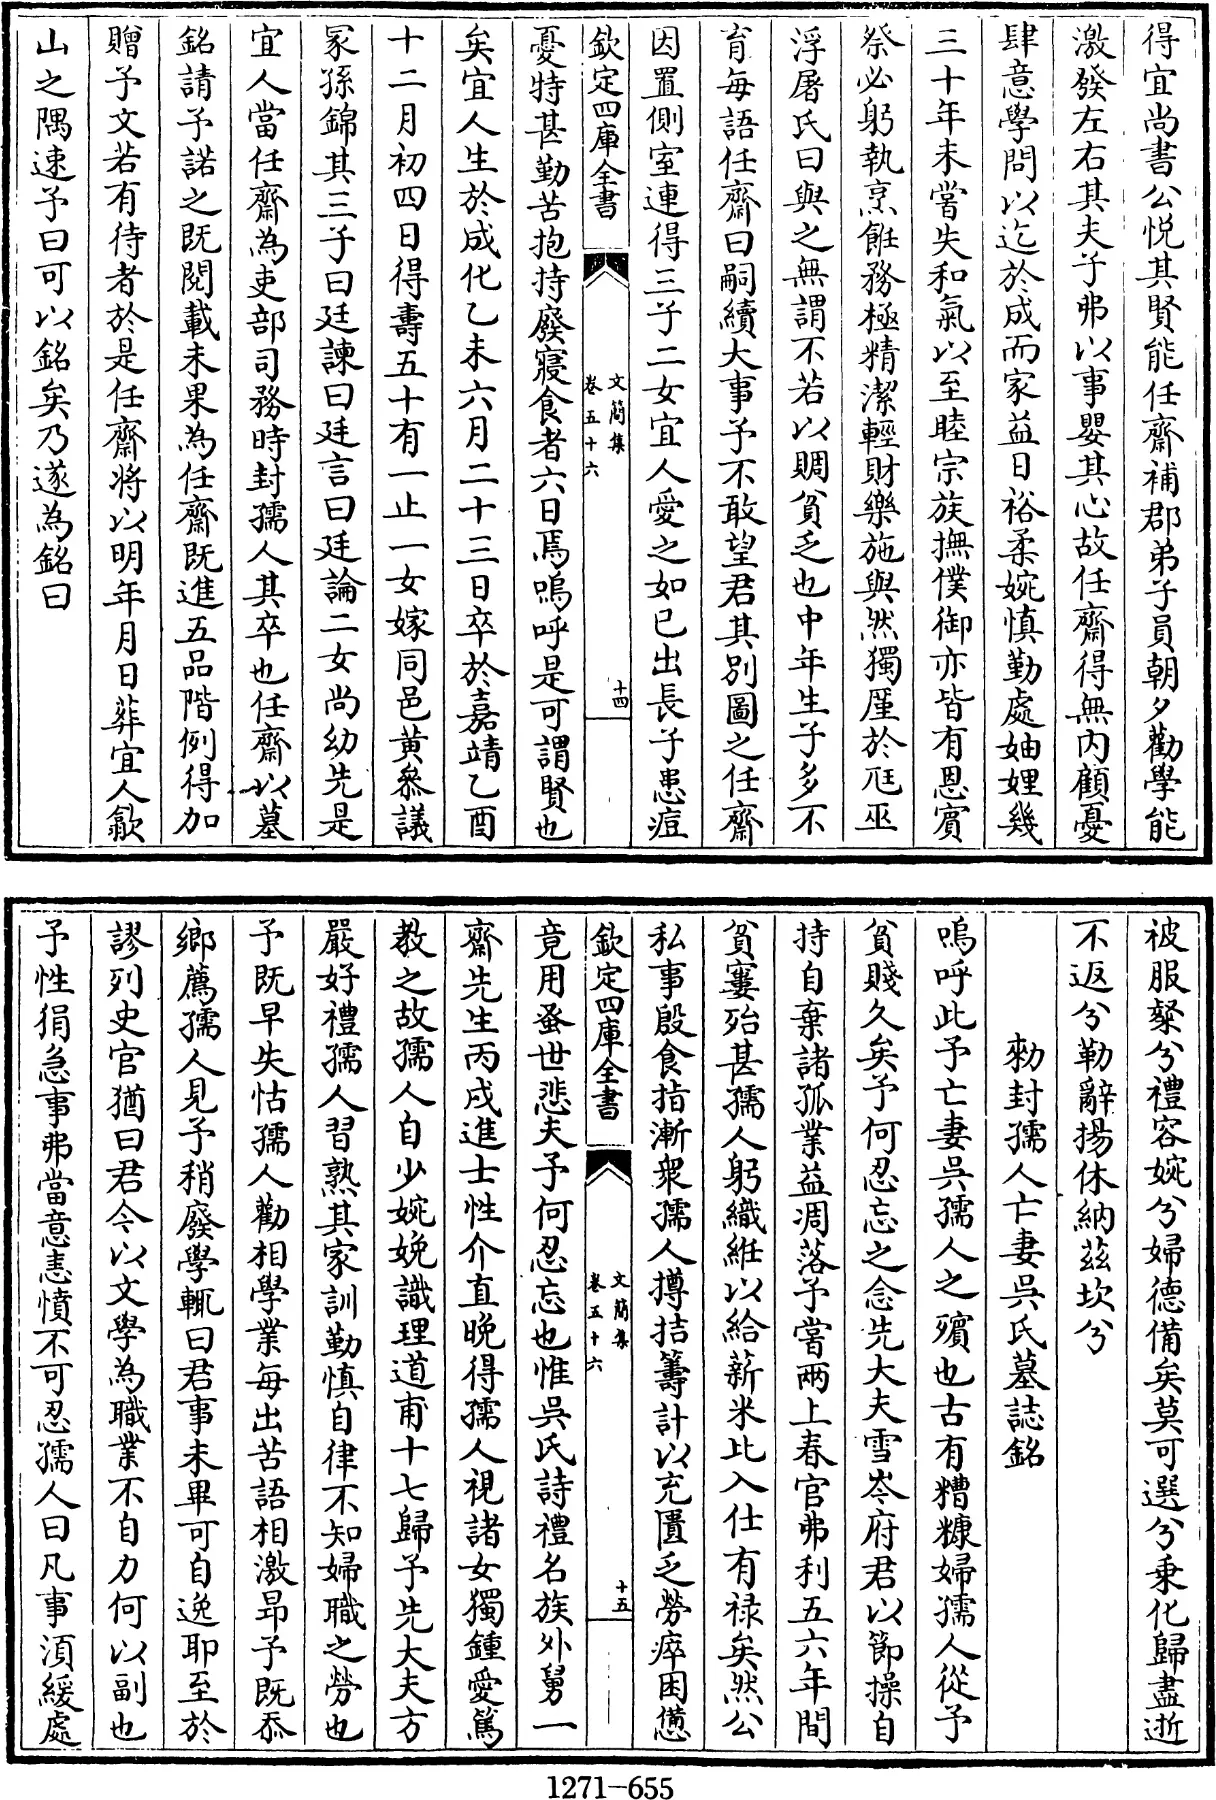 得宜尚書公悦其賢能任齋補郡弟子員朝夕勸學能
激發左右其夫子弗以事嬰其心故任齋得無内顧憂
肆意學問以迄於成而家益日裕柔婉慎勤處妯娌幾
三十年未嘗失和氣以至睦宗族撫僕御亦皆有恩賓
祭必躬執烹飪務極精潔輕財樂施與然獨厪於尫巫
浮屠氏曰與之無謂不若以賙貧乏也中年生子多不
育每語任齋曰嗣續大事予不敢望君其別圖之任齋
因置側室連得三子二女宜人愛之如已出長子患痘
欽定四庫全書
文簡集
卷五十六
十四
憂特甚勤苦抱持廢寢食者六日焉嗚呼是可謂賢也
矣宜人生於成化乙未六月二十三日卒於嘉靖乙酉
十二月初四日得壽五十有一止一女嫁同邑黄叅議
冢孫錦其三子曰廷諫曰廷言曰廷論二女尚幼先是
宜人當任齋為吏部司務時封孺人其卒也任齋以墓
銘請予諾之既閱載未果為任齋既進五品階例得加
贈予文若有待者於是任齋將以明年月日葬宜人歙
山之隅速予曰可以銘矣乃遂為銘曰
被服粲兮禮容婉兮婦德備矣莫可選兮乗化歸盡逝
不返兮勒辭揚休納茲坎兮
勑封孺人亡妻吳氏墓誌銘
嗚呼此予亡妻吳孺人之殯也古有糟糠婦孺人從予
貧賤久矣予何忍忘之念先大夫雪岑府君以節操自
持自棄諸孤業益凋落予嘗兩上春官弗利五六年間
貧窶殆甚孺人躬織絍以給薪米比入仕有禄矣然公
私事殷食指漸衆孺人撙拮籌計以充匱乏勞瘁困憊
欽定四庫全書
文簡集
卷五十六
十五
竟用蚤世悲夫予何忍忘也惟吳氏詩禮名族外舅一
齋先生丙戍進士性介直晚得孺人視諸女獨鍾愛篤
教之故孺人自少婉娩識理道甫十七歸予先大夫方
嚴好禮孺人習熟其家訓勤慎自律不知婦職之勞也
予既早失怙孺人勸相學業每出苦語相激昂予既忝
鄉薦孺人見予稍廢學輒曰君事未畢可自逸耶至於
謬列史官猶曰君今以文學為職業不自力何以副也
予性狷急事弗當意恚憤不可忍孺人曰凡事湏緩處
1271—655